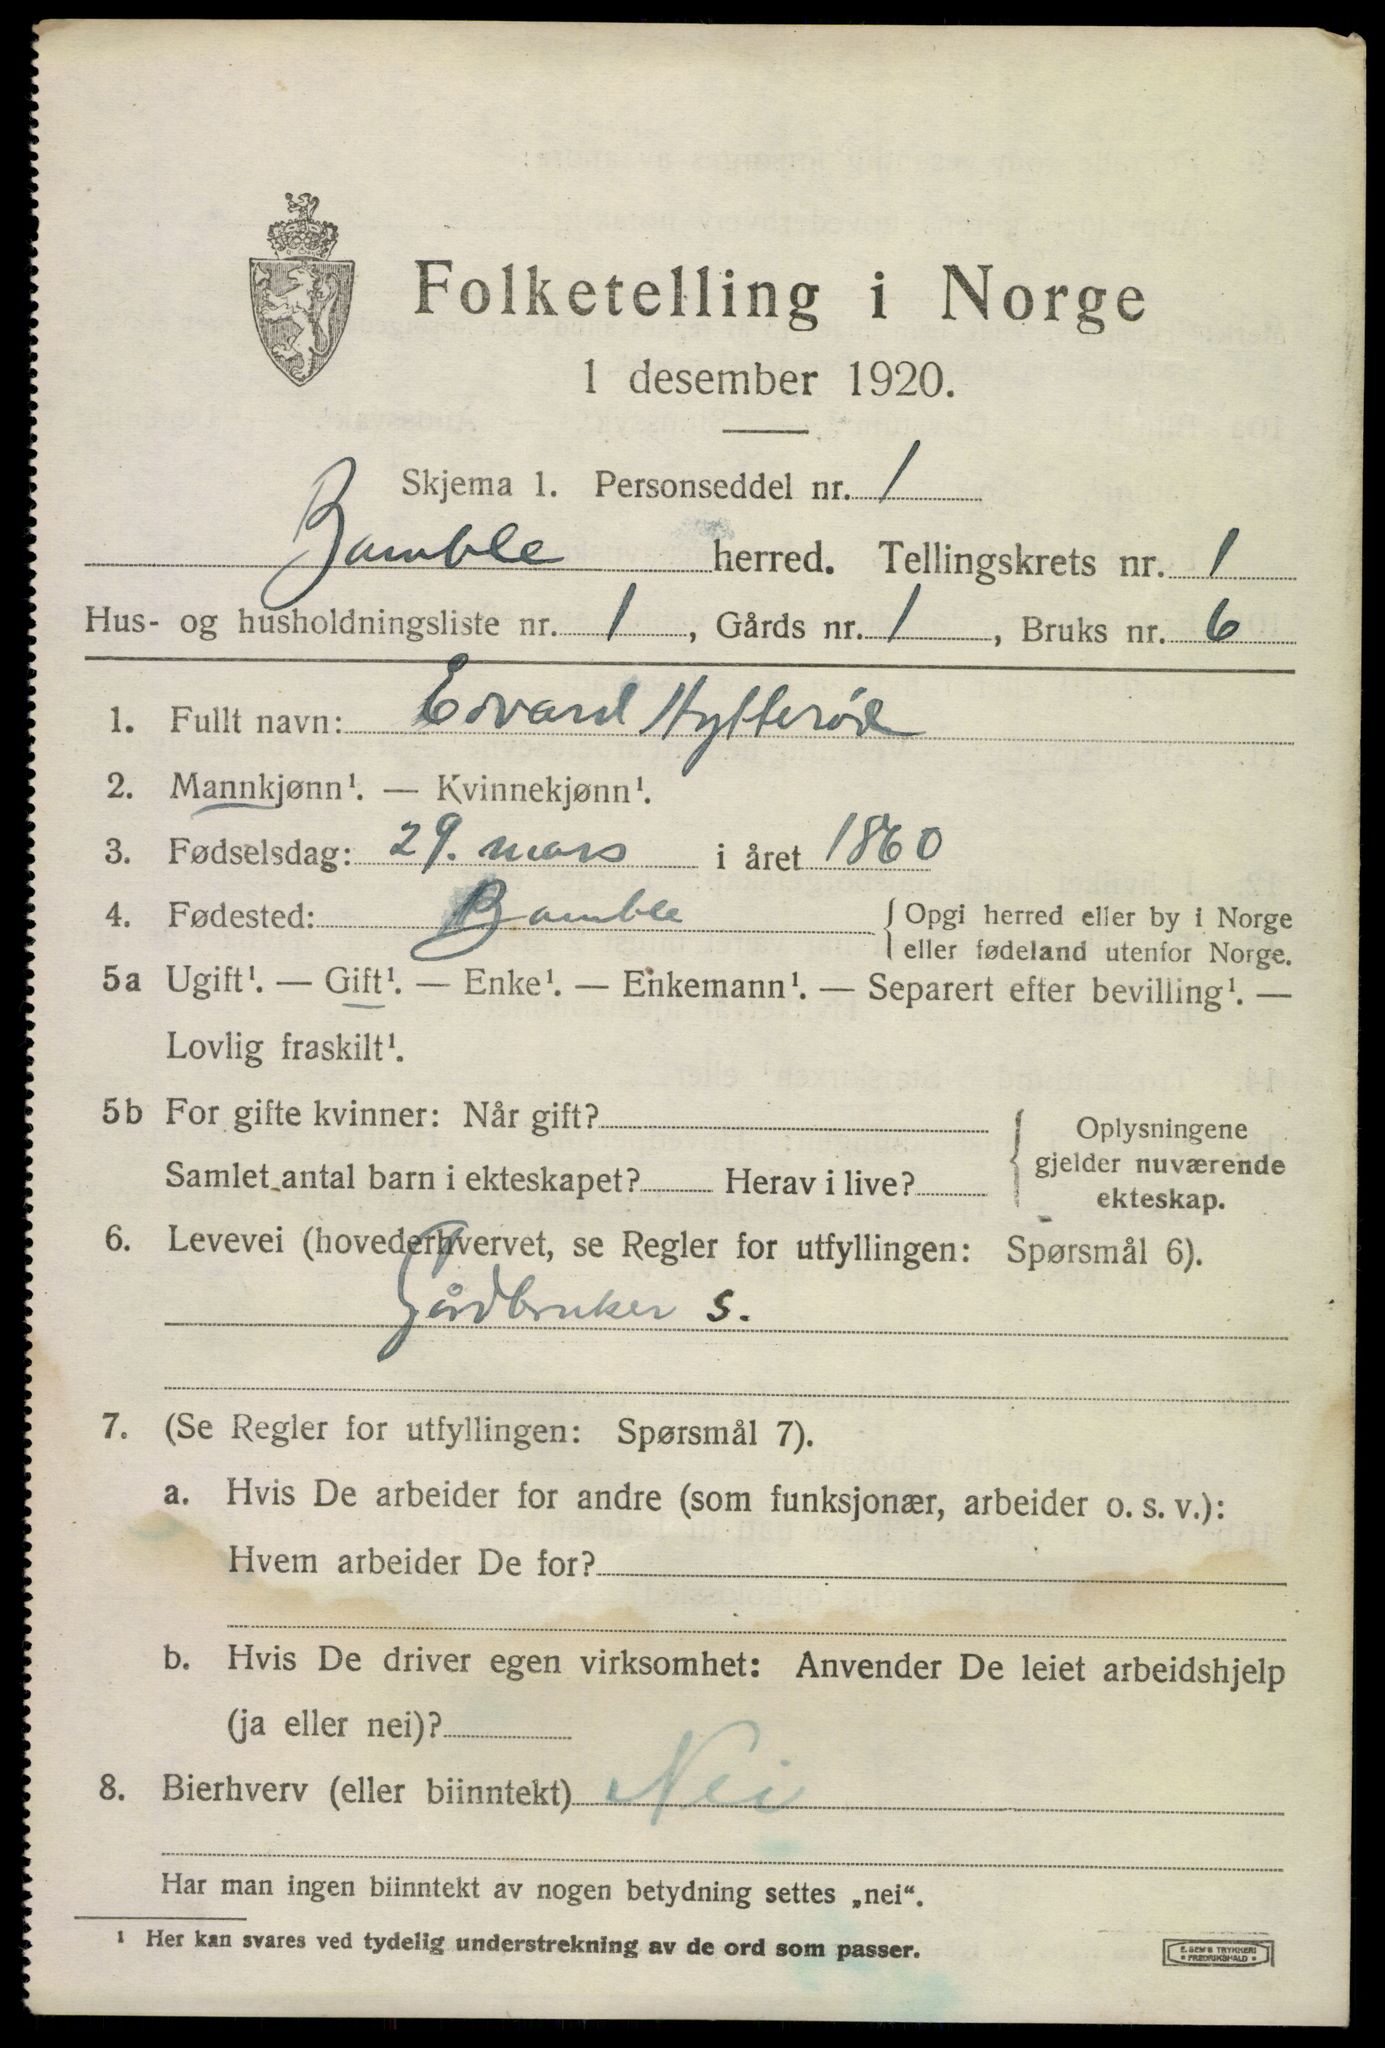 Folketelling i Norge
1 desember 1920.
Skjema 1. Personseddel nr. 1
Bamble herred. Tellingskrets nr. 1
Hus- og husholdningsliste nr. 1, Gårds nr. 1, Bruks nr. 6
1. Fullt navn: Edvard Hytterød
2. Mannkjønn¹. — Kvinnekjønn¹.
3. Fødselsdag: 29. mars i året 1860
4. Fødested: Bamble { Opgi herred eller by i Norge
eller fødeland utenfor Norge.
5a Ugift¹. — Gift¹. — Enke¹. — Enkemann¹. — Separert efter bevilling¹. —
Lovlig fraskilt¹.
5b For gifte kvinner: Når gift?
Samlet antal barn i ekteskapet? Herav i live?
{ Oplysningene
gjelder nuværende
ekteskap.
6. Levevei (hovederhvervet, se Regler for utfyllingen: Spørsmål 6).
Gårdbruker S.
7. (Se Regler for utfyllingen: Spørsmål 7).
a. Hvis De arbeider for andre (som funksjonær, arbeider o. s. v.):
Hvem arbeider De for?
b. Hvis De driver egen virksomhet: Anvender De leiet arbeidshjelp
(ja eller nei)?
8. Bierhverv (eller biinntekt) Nei
Har man ingen biinntekt av nogen betydning settes „nei“.
¹ Her kan svares ved tydelig understrekning av de ord som passer.
E. SEM'S TRYKKERI
• FREDRIKSHALD •